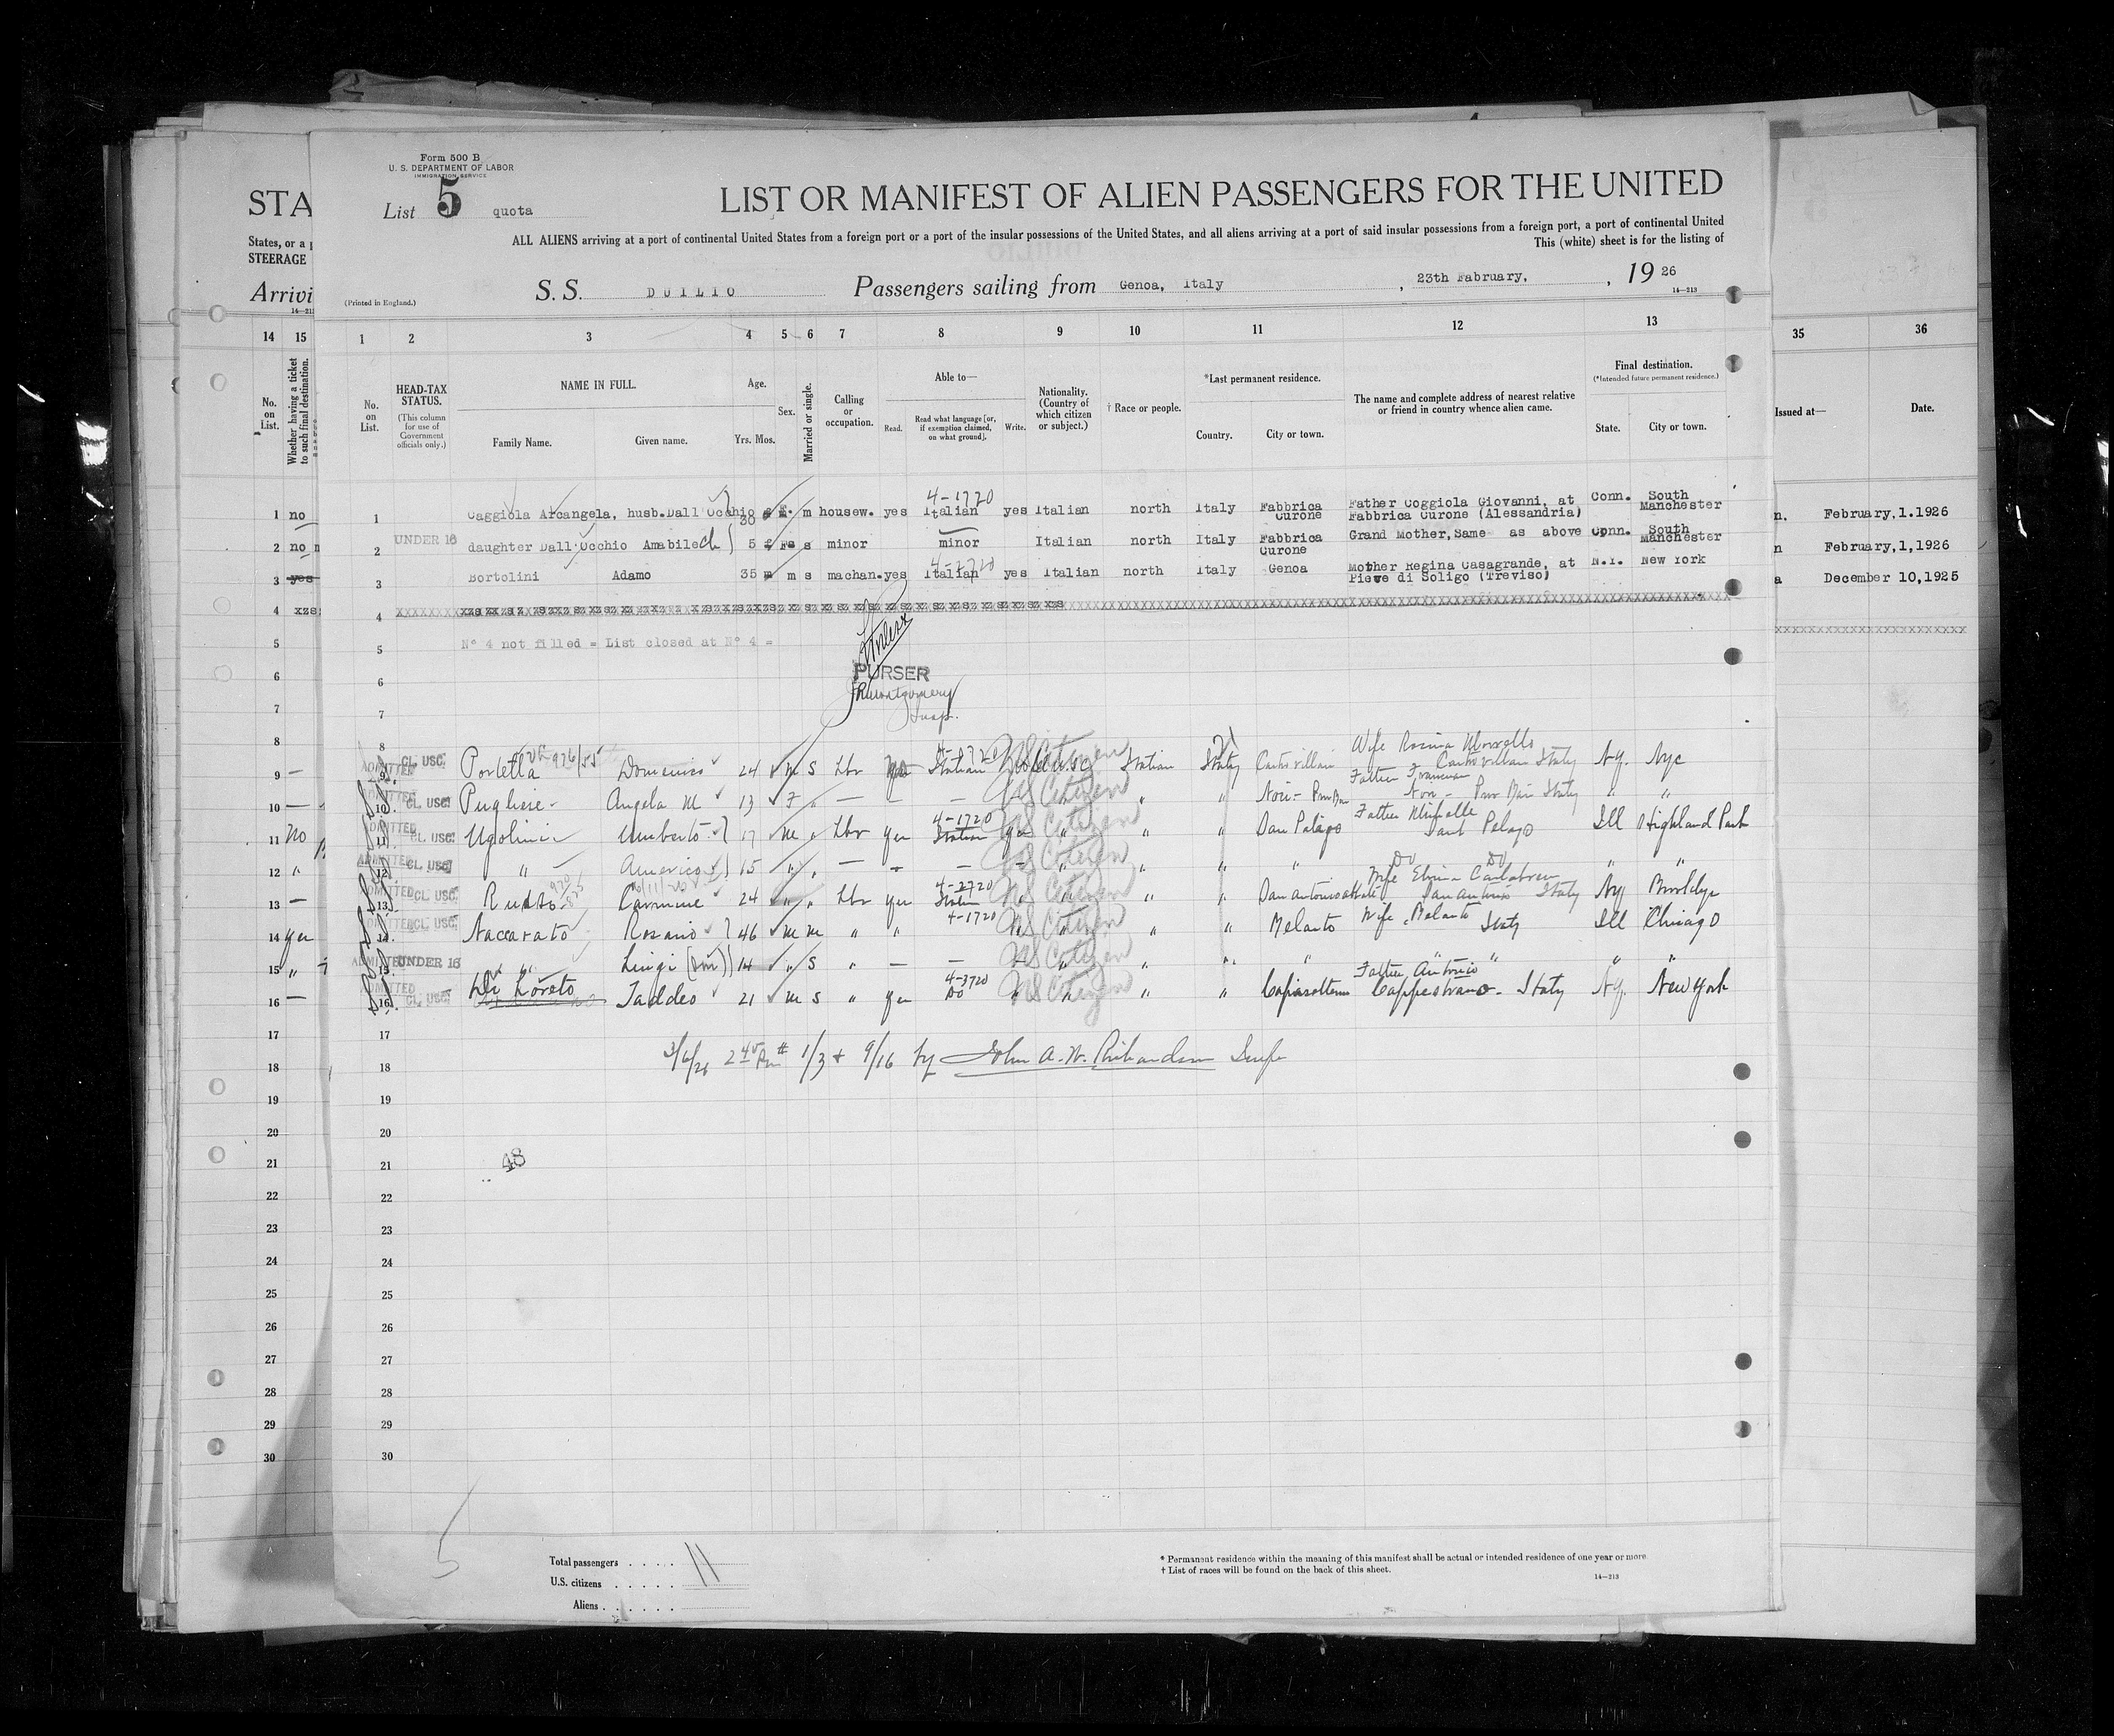 Form 500 B
U. S. DEPARTMENT OF LABOR
IMMIGRATION SERVICE
List 5 quota
STA
LIST OR MANIFEST OF ALIEN PASSENGERS FOR THE UNITED
States, or a
STEERAGE
ALL ALIENS arriving at a port of continental United States from a foreign port or a port of the insular possessions of the United States, and all aliens arriving at a port of said insular possessions from a foreign port, a port of continental United
This (white) sheet is for the listing of
Arrivi
(Printed in England.)
S. S. DUILIO Passengers sailing from Genoa, Italy , 23th Fabruary, , 19 26
14—213
14 15 1 2 3 4 5 6 7 8 9 10 11 12 13 35 36
No. on List.
Whether having a ticket to such final destination.
No. on List.
HEAD-TAX STATUS.
(This column for use of Government officials only.)
NAME IN FULL.
Family Name. Given name.
Age.
Yrs. Mos.
Sex.
Married or single.
Calling or occupation.
Able to—
Read. Read what language [or, if exemption claimed, on what ground]. Write.
Nationality. (Country of which citizen or subject.)
† Race or people.
*Last permanent residence.
Country. City or town.
The name and complete address of nearest relative or friend in country whence alien came.
Final destination.
(*Intended future permanent residence.)
State. City or town.
Issued at— Date.
4-1720
1 no 1 Caggiola Arcangela, husb. Dall'Occhio 30 f. m housew. yes Italian yes Italian north Italy Fabbrica Curone Father Coggiola Giovanni, at Fabbrica Curone (Alessandria) Conn. South Manchester n. February,1.1926
2 no 2 UNDER 16 daughter Dall'Occhio Amabile 5 s minor minor Italian north Italy Fabbrica Curone Grand Mother, Same as above Conn. South Manchester n February,1,1926
4-2720
3 yes 3 Bortolini Adamo 35 m m s machan. yes Italian yes Italian north Italy Genoa Mother Regina Casagrande, at Pieve di Soligo (Treviso) N.Y. New York a December 10,1925
4 4
5 5 N° 4 not filled = List closed at N° 4 =
6 6 PURSER
7 7 JRMontgomery Insp.
8 8
9 — 9 ADMITTED CL. USC. Porletta Domenico 24 m s Lbr Italian US Citizen Italian Italy Wife Italy N.Y. Nyc
10 — 10 ADMITTED CL. USC. Pugliese Angela M 13 F " — — — US Citizen " " Father Italy " "
4-1720
11 No 11 ADMITTED CL. USC. Ugolini Umberto 17 m " Lbr yes Italian yes US Citizen " " San Pelago Father Ill Highland Park
12 " 12 ADMITTED CL. USC. " Americo 15 " " — — — US Citizen " " " Do Do " "
4-2720
13 — 13 ADMITTED CL. USC. Carmine 24 " " Lbr yes Italian US Citizen " " Wife Italy Ny Brooklyn
4-1720
14 yes 14 ADMITTED CL. USC. Naccarato Rosario 46 m m " " US Citizen " " Melanto Wife Melanto Italy Ill Chicago
15 " 15 ADMITTED UNDER 16 " Luigi (son) 14 " s " — — US Citizen " " " " " "
4-3720
16 — 16 ADMITTED CL. USC. Di Loreto Taddeo 21 m s " yes Do US Citizen " " Father Antonio Cappestrano - Italy N.Y. New York
17 17
18 18 3/6/26 2 45 Pm # 1/3 + 9/16 by John A. W. Richardson Insp
19 19
20 20
21 21 48
22 22
23 23
24 24
25 25
26 26
27 27
28 28
29 29
30 30
5
Total passengers 11
U.S. citizens
Aliens
* Permanent residence within the meaning of this manifest shall be actual or intended residence of one year or more
† List of races will be found on the back of this sheet.
14—213